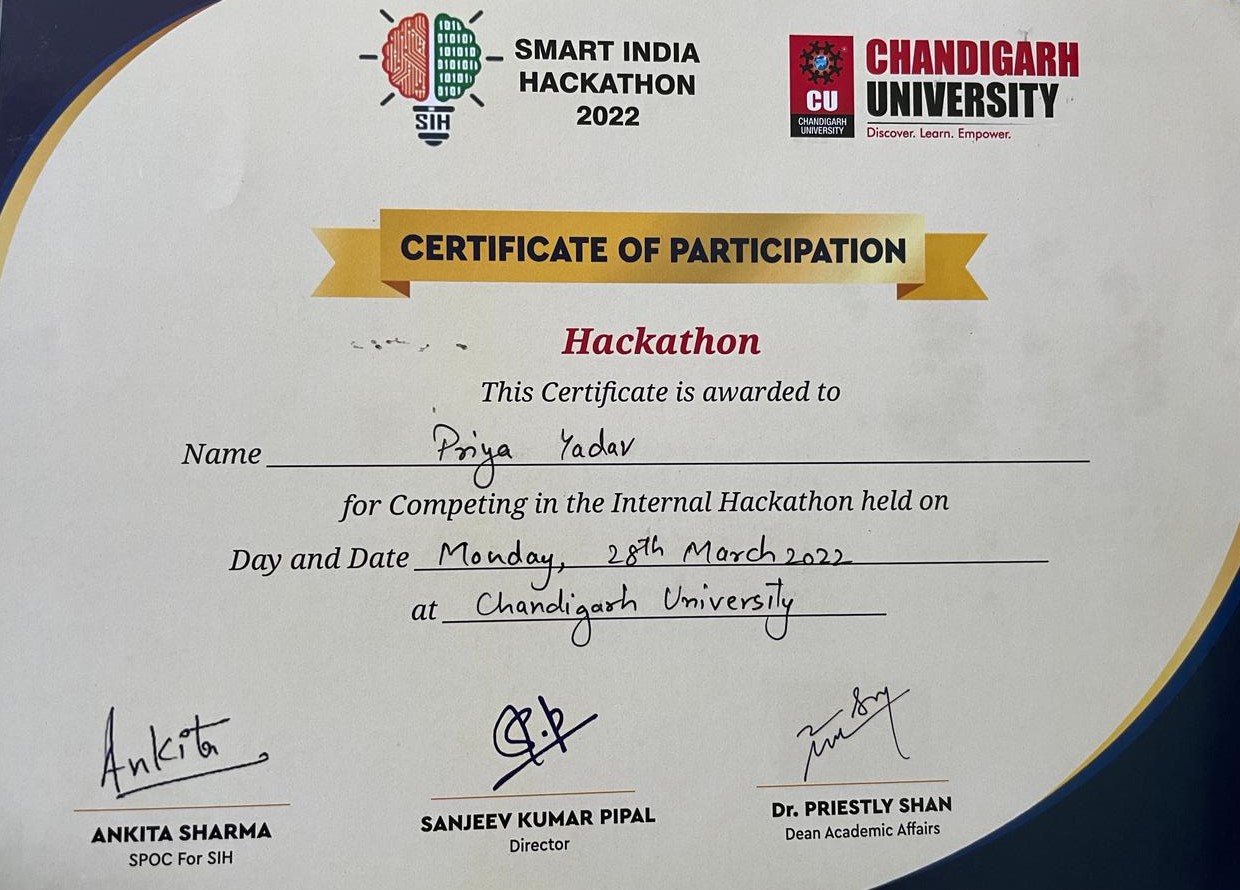 SMART INDIA
HACKATHON
2022
SIH
CHANDIGARH
UNIVERSITY
Discover. Learn. Empower.
CU
CHANDIGARH
UNIVERSITY
CERTIFICATE OF PARTICIPATION
Hackathon
This Certificate is awarded to
Name Priya Yadav
for Competing in the Internal Hackathon held on
Day and Date Monday, 28th March 2022
at Chandigarh University
Ankita
ANKITA SHARMA
SPOC For SIH
SANJEEV KUMAR PIPAL
Director
Dr. PRIESTLY SHAN
Dean Academic Affairs